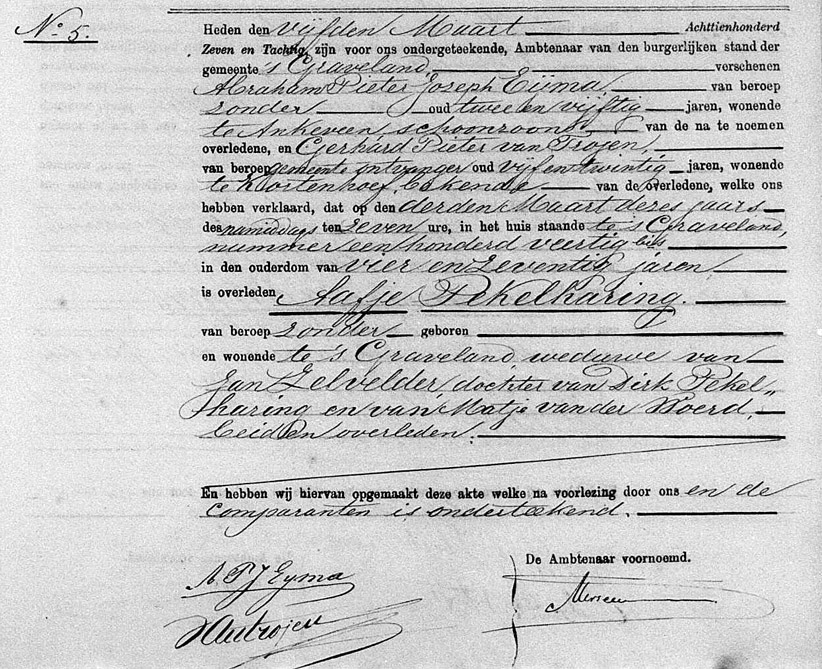 No. 5.
Heden den vijfden Maart Achttienhonderd
Zeven en Tachtig, zijn voor ons ondergeteekende, Ambtenaar van den burgerlijken stand der
gemeente 's Graveland, verschenen
Abraham Pieter Joseph Eijma, van beroep
zonder oud twee en vijftig jaren, wonende
te Ankeveen schoonzoon van de na te noemen
overledene, en Gerhard Pieter van Trojen,
van beroep gemeente ontvanger oud vijf en twintig jaren, wonende
te Kortenhoef, bekende van de overledene, welke ons
hebben verklaard, dat op den derden Maart dezes jaars
des namiddags ten zeven ure, in het huis staande te 's Graveland,
nummer een honderd veertig bis
in den ouderdom van vier en zeventig jaren,
is overleden Aafje Pekelharing.
van beroep zonder geboren
en wonende te 's Graveland, weduwe van
Jan Zelvelder, dochter van Dirk Pekel„
haring en van Metje van der Woerd,
beiden overleden.
En hebben wij hiervan opgemaakt deze akte welke na voorlezing door ons en de
comparanten is onderteekend.
De Ambtenaar voornoemd.
A P J Eyma